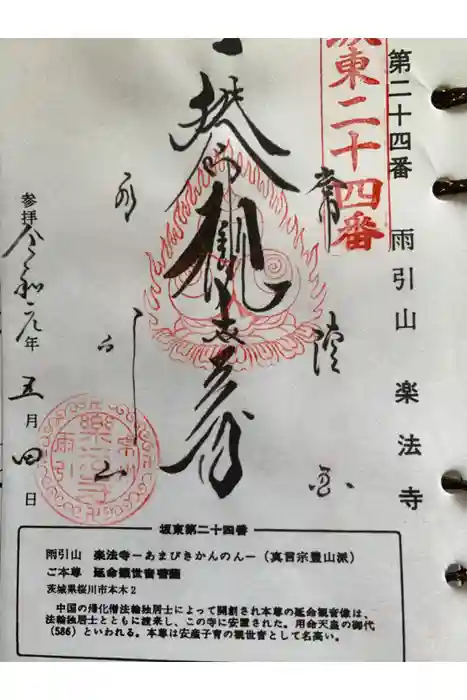 坂東二十四番
第二十四番 雨引山 楽法寺
常陸国
雨引山
参拝 令和元年 五月 四日
坂東第二十四番
雨引山 楽法寺－あまびきかんのん－（真言宗豊山派）
ご本尊 延命観世音菩薩
茨城県桜川市本木2
中国の帰化僧法輪独居士によって開創され本尊の延命観音像は、
法輪独居士とともに渡来し、この寺に安置された。用命天皇の御代
(586) といわれる。本尊は安産子育の観世音として名高い。